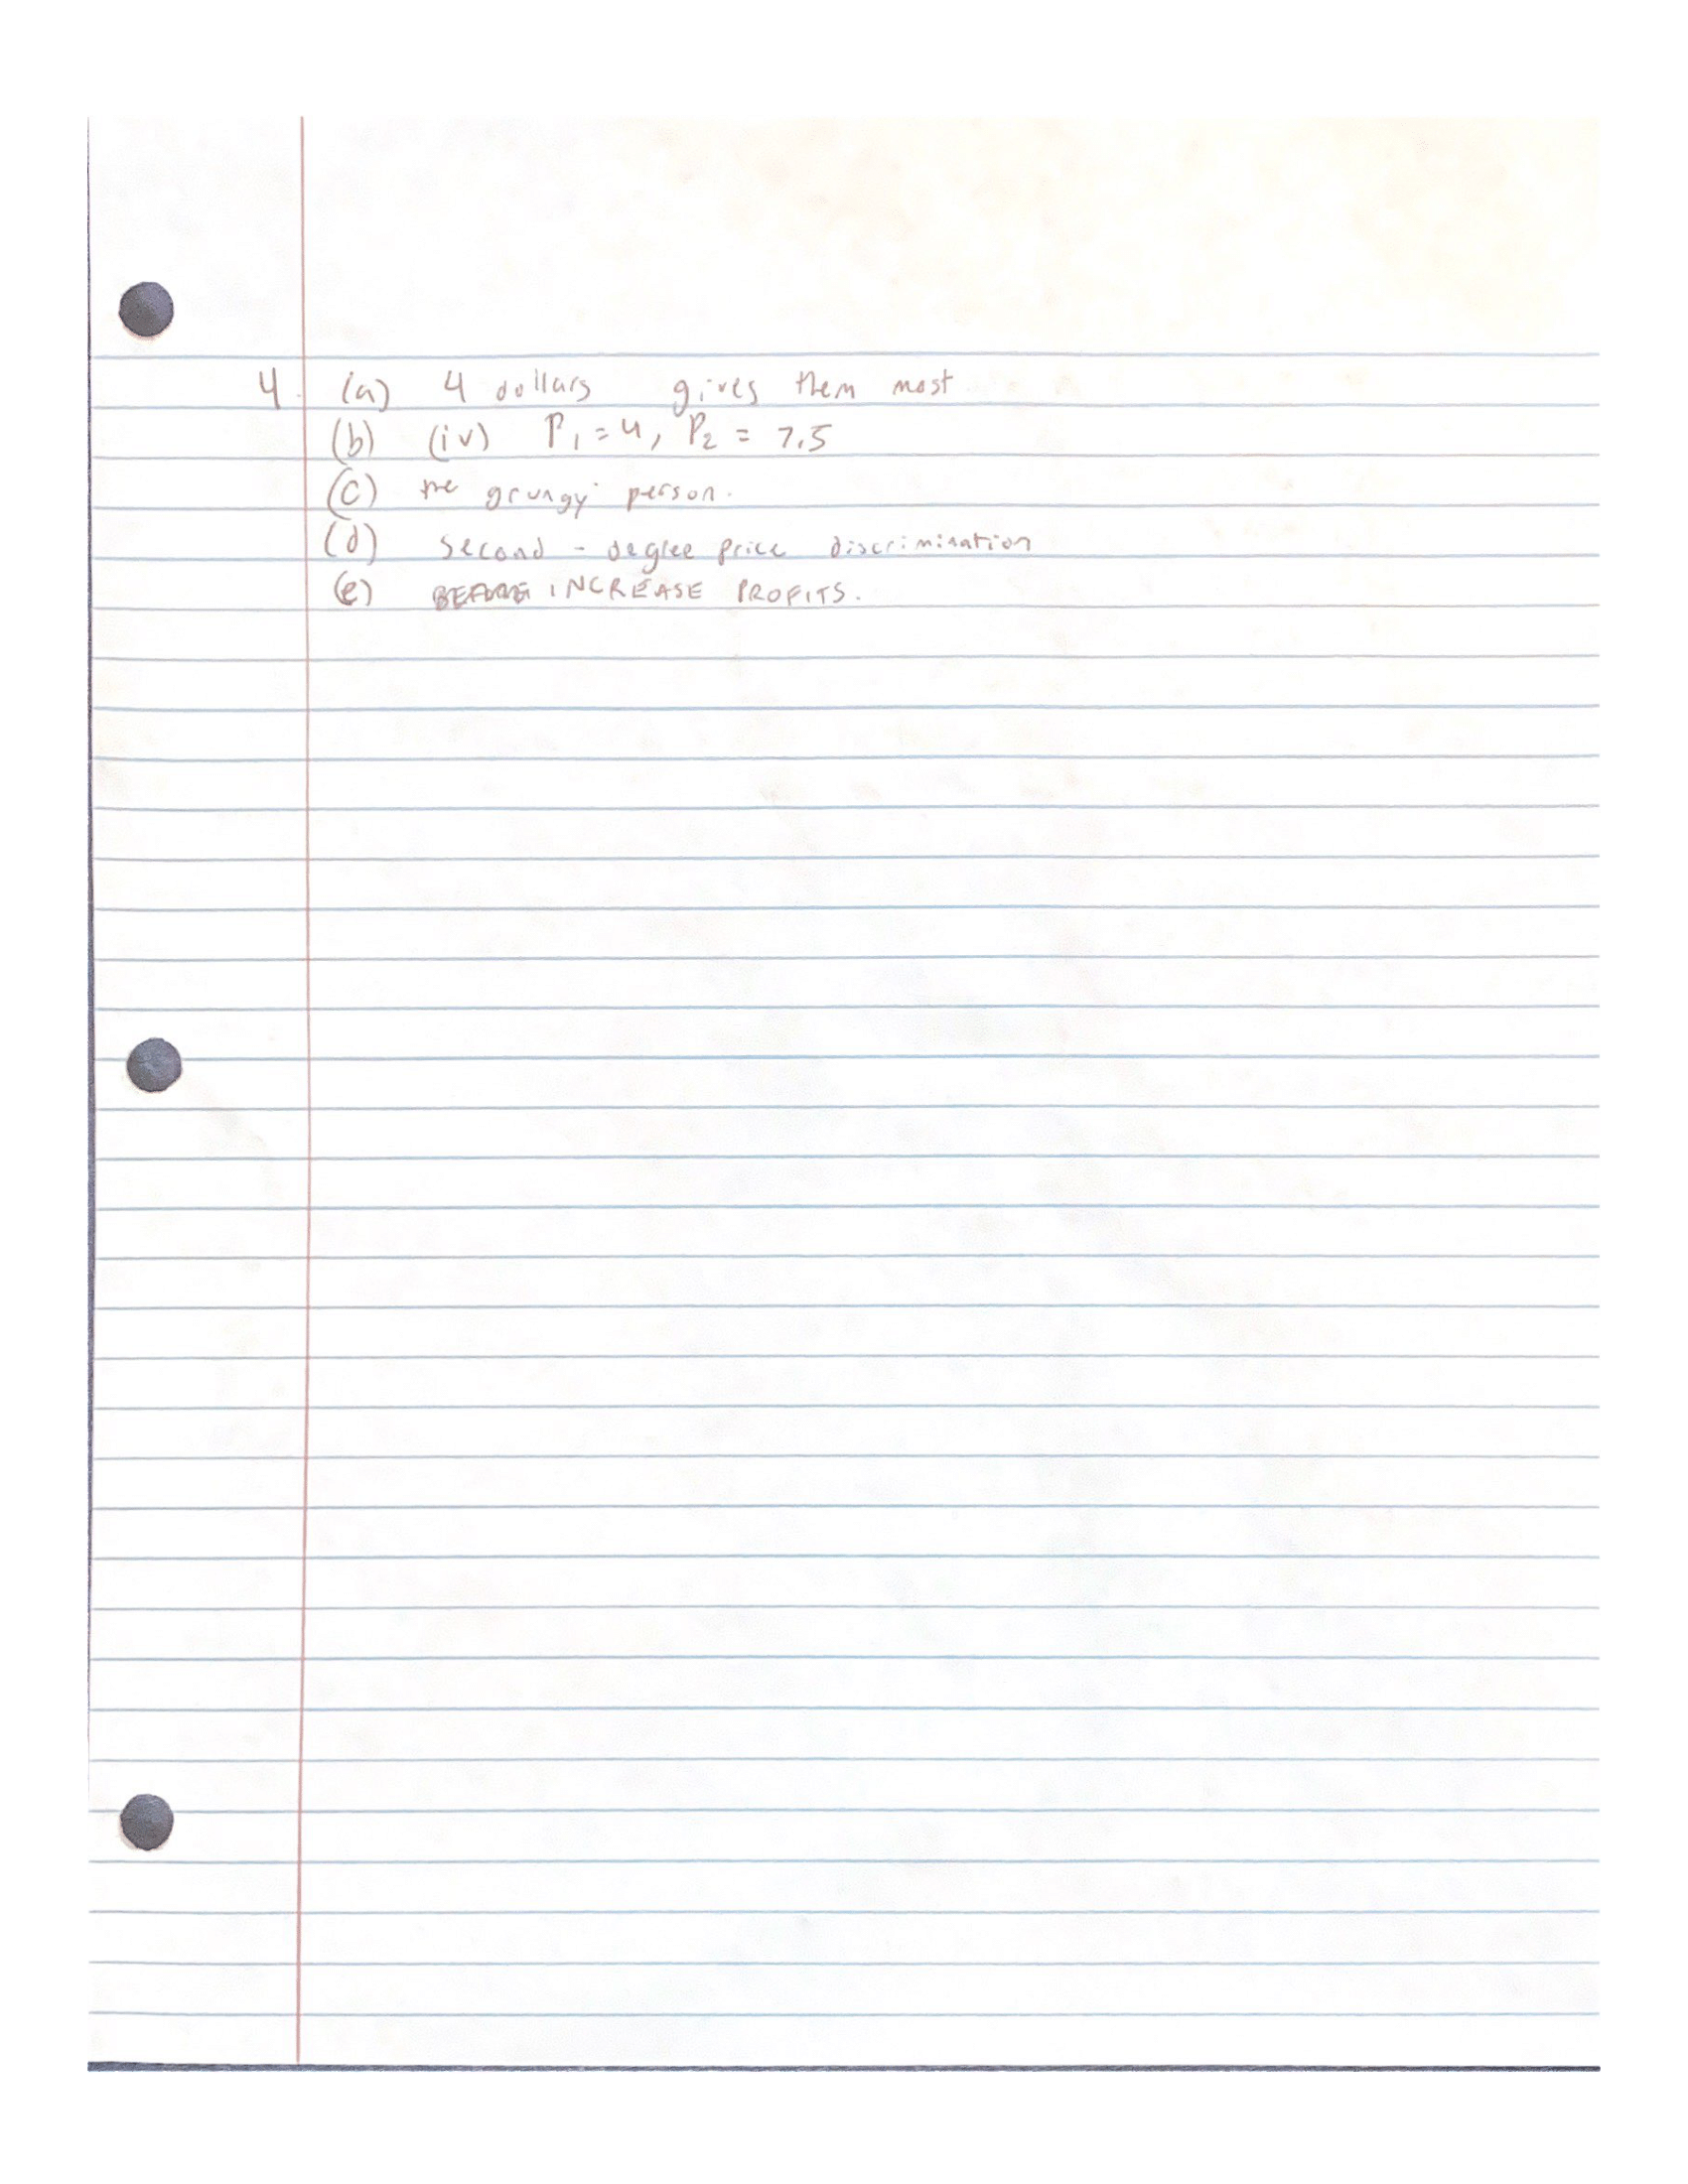 4. (a) 4 dollars gives them most
(b) (iv) P1 = 4, P2 = 7.5
(c) the grungy person.
(d) second - degree price discrimination
(e) INCREASE PROFITS.